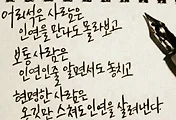 어리석은 사람은
인연을 만나도 몰라보고
보통 사람은
인연인줄 알면서도 놓치고
현명한 사람은
옷깃만 스쳐도 인연을 살려낸다